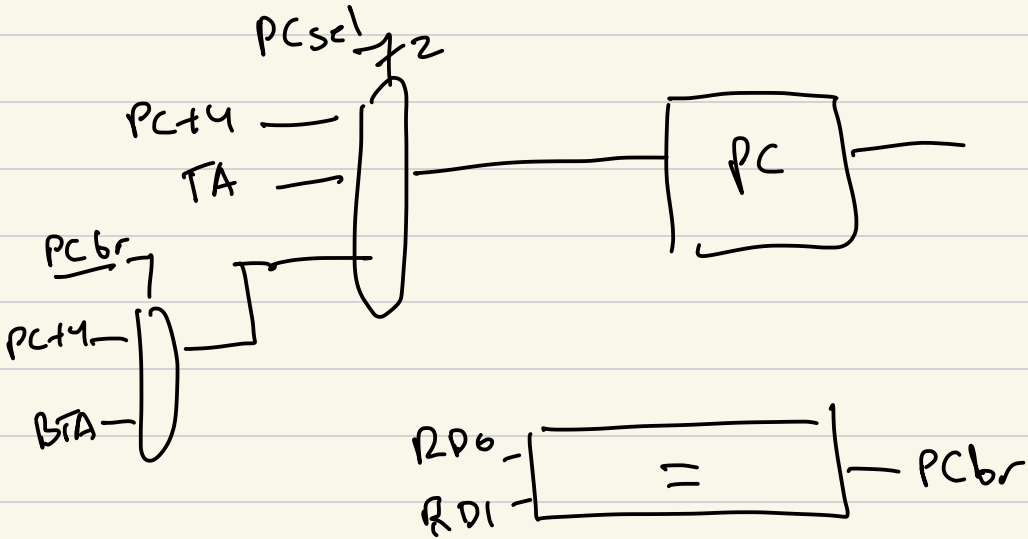 PCsel 2
PC+4
TA
PC
PCbr
PC+4
BTA
RD0
=
PCbr
RD1